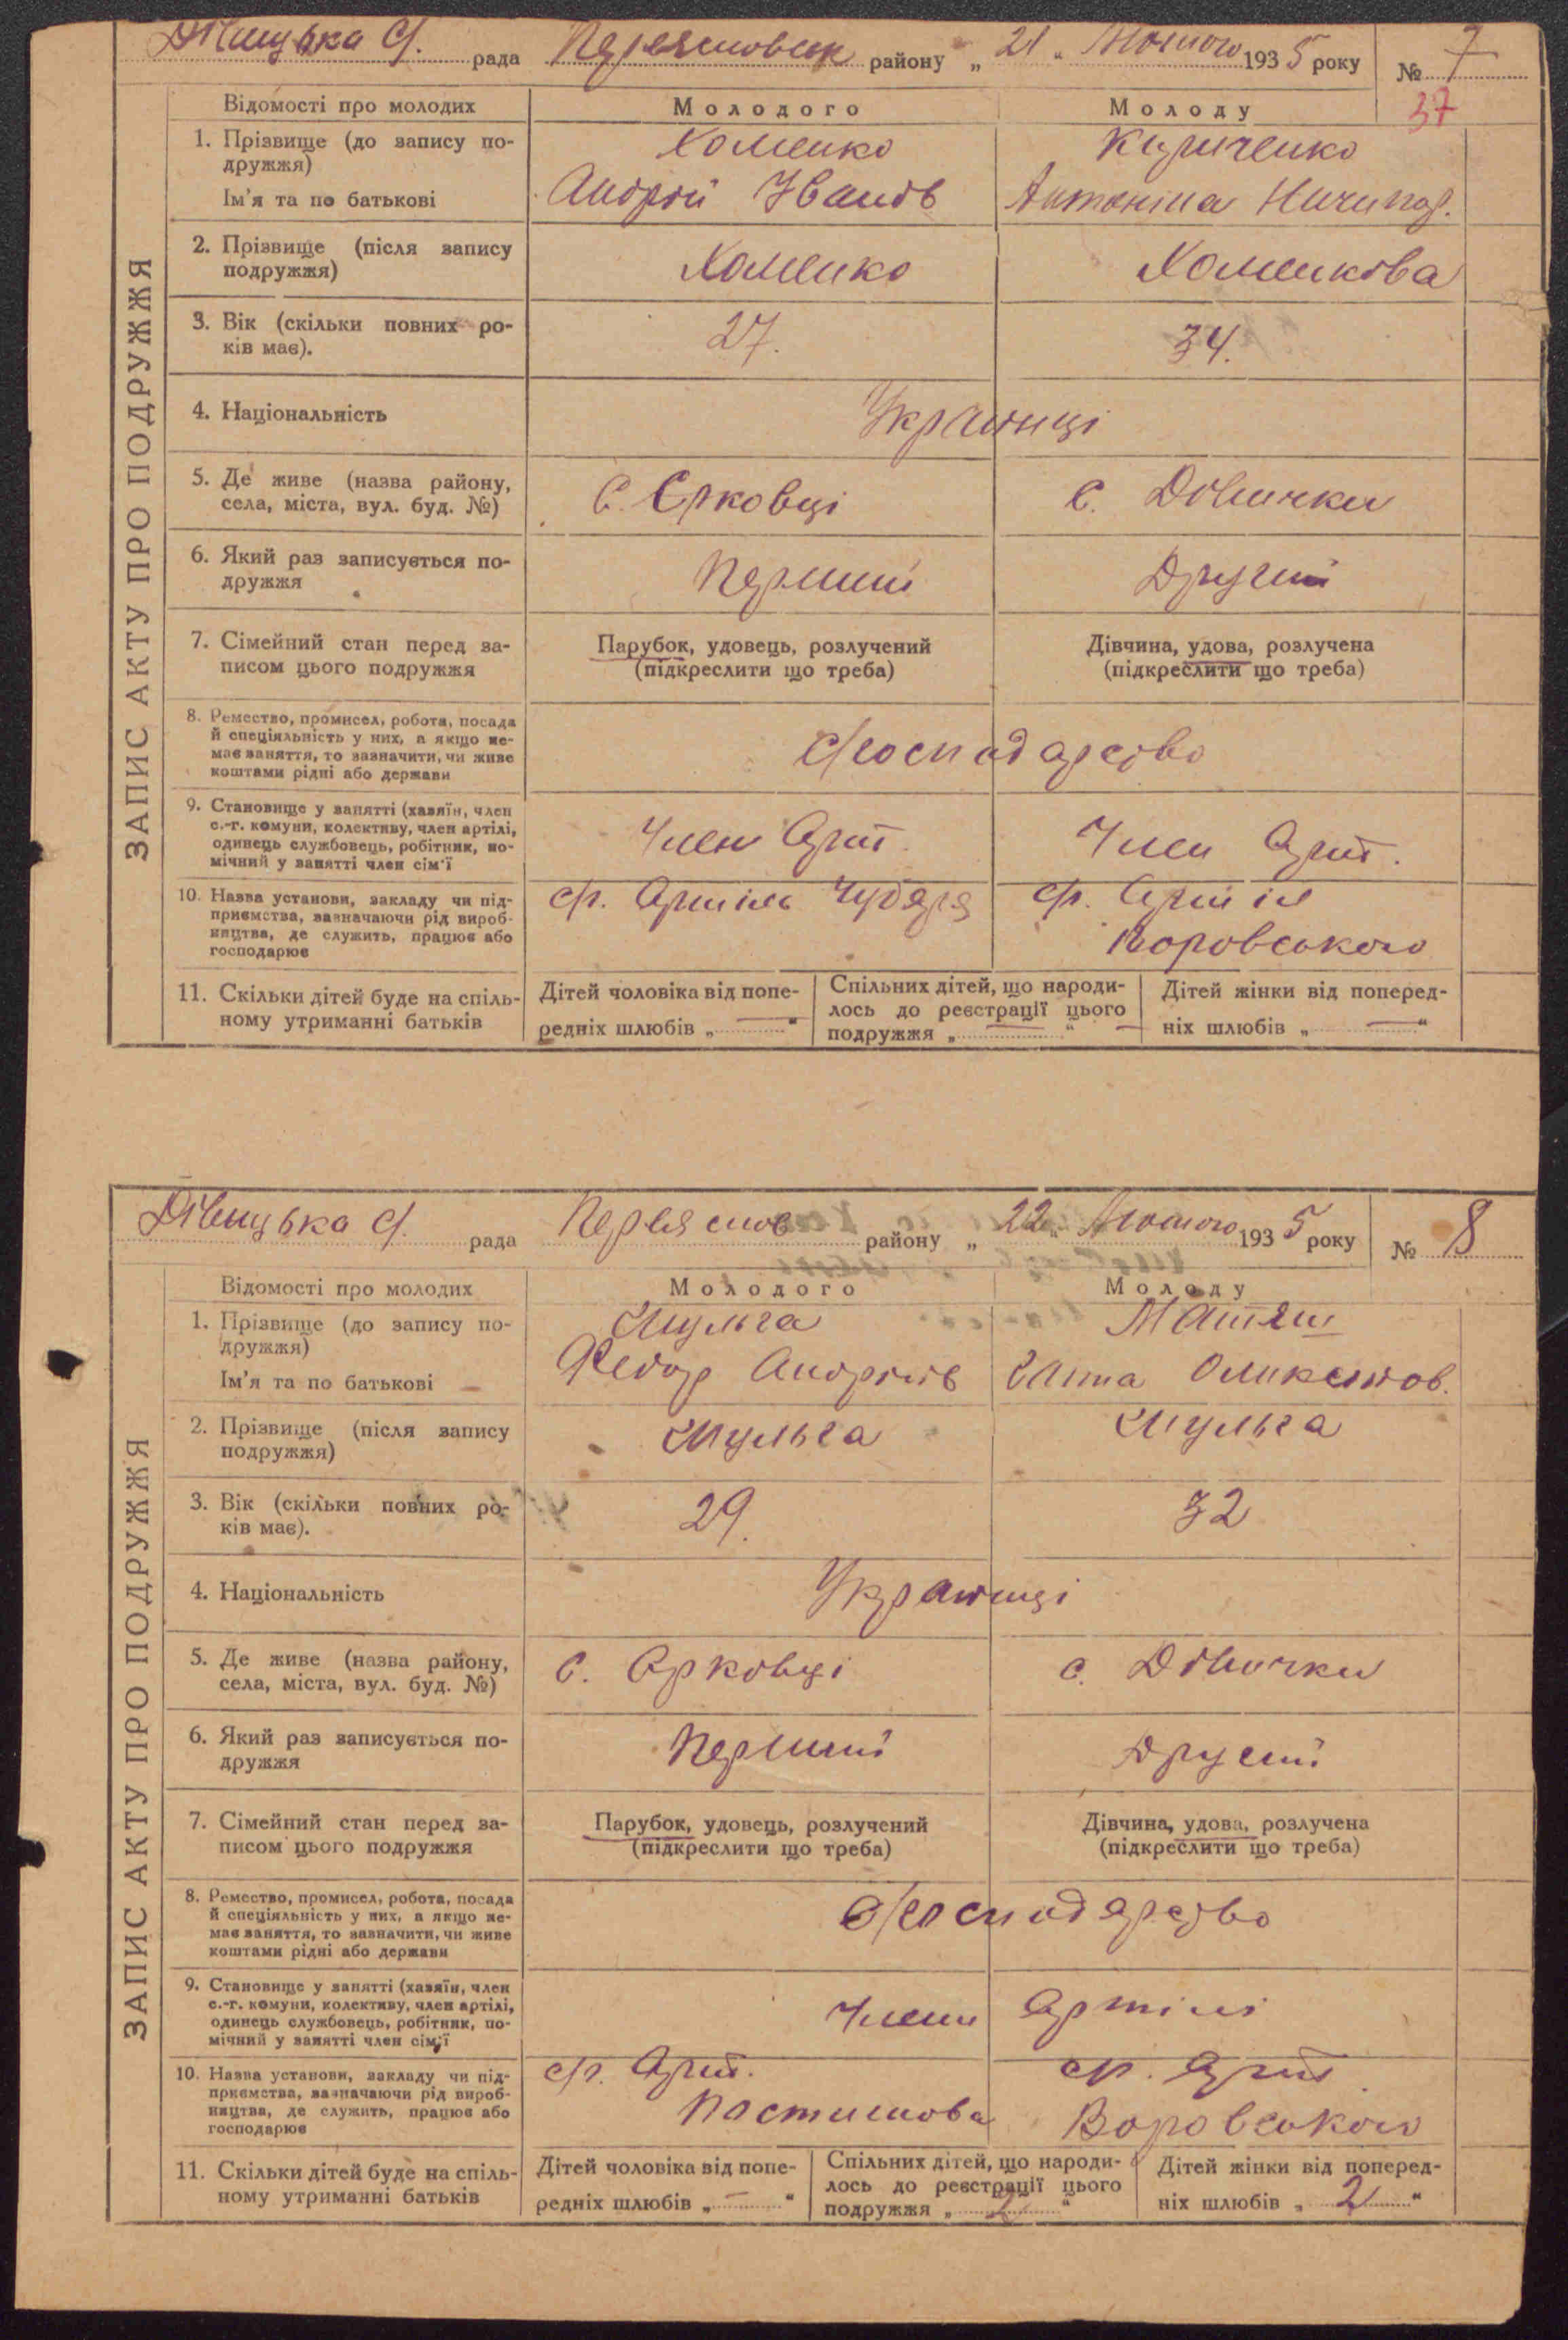 Дівицька С/. рада Переясловськ району „ 21 „ Лютого 1935 року № 7
37
Відомості про молодих Молодого Молоду
1. Прізвище (до запису по- Хоменко Кириченко
дружжя)
Ім'я та по батькові Андрій Іванів Антоніна Ничипор.
2. Прізвище (після запису Хоменко Хоменкова
подружжя)
3. Вік (скільки повних ро- 27. 34.
ків має).
4. Національність Українці
5. Де живе (назва району, с. Єрковці с. Дівички
села, міста, вул. буд. №)
6. Який раз записується по- Перший Другий
дружжя
7. Сімейний стан перед за- Парубок, удовець, розлучений Дівчина, удова, розлучена
писом цього подружжя (підкреслити що треба) (підкреслити що треба)
8. Ремество, промисел, робота, посада
й спеціяльність у них, а якщо не- С/господарство
має заняття, то зазначити, чи живе
коштами рідні або держави
9. Становище у занятті (хазяїн, член
с.-г. комуни, колективу, член артілі, Член Арт. Член Арт.
одинець службовець, робітник, по-
мічний у занятті член сім'ї
10. Назва установи, закладу чи під- с/г. Артіль Чубаря с/г. Артіл
приємства, зазначаючи рід вироб-
ництва, де служить, працює або Воровського
господарює
11. Скільки дітей буде на спіль- Дітей чоловіка від попе- Спільних дітей, що народи- Дітей жінки від поперед-
ному утриманні батьків редніх шлюбів „ — “ лось до реєстрації цього ніх шлюбів „ — “
подружжя „ — “ —
ЗАПИС АКТУ ПРО ПОДРУЖЖЯ
Дівицька С/. рада Переяслов району „ 22 „ Лютого 1935 року № 8
Відомості про молодих Молодого Молоду
1. Прізвище (до запису по- Шульга Матяш
дружжя)
Ім'я та по батькові Федор Андріїв Ганна
2. Прізвище (після запису Шульга Шульга
подружжя)
3. Вік (скільки повних ро- 29. 32
ків має).
4. Національність Українці
5. Де живе (назва району, с. Єрковці с. Дівички
села, міста, вул. буд. №)
6. Який раз записується по- Перший Другий
дружжя
7. Сімейний стан перед за- Парубок, удовець, розлучений Дівчина, удова, розлучена
писом цього подружжя (підкреслити що треба) (підкреслити що треба)
8. Ремество, промисел, робота, посада
й спеціяльність у них, а якщо не- С/господарство
має заняття, то зазначити, чи живе
коштами рідні або держави
9. Становище у занятті (хазяїн, член
с.-г. комуни, колективу, член артілі, Члени Артілі
одинець службовець, робітник, по-
мічний у занятті член сім'ї
10. Назва установи, закладу чи під- с/г. Арт. с/г. Арт
приємства, зазначаючи рід вироб-
ництва, де служить, працює або Постишова Воровського
господарює
11. Скільки дітей буде на спіль- Дітей чоловіка від попе- Спільних дітей, що народи- Дітей жінки від поперед-
ному утриманні батьків редніх шлюбів „ — “ лось до реєстрації цього ніх шлюбів „ 2 “
подружжя „ 2 “
ЗАПИС АКТУ ПРО ПОДРУЖЖЯ